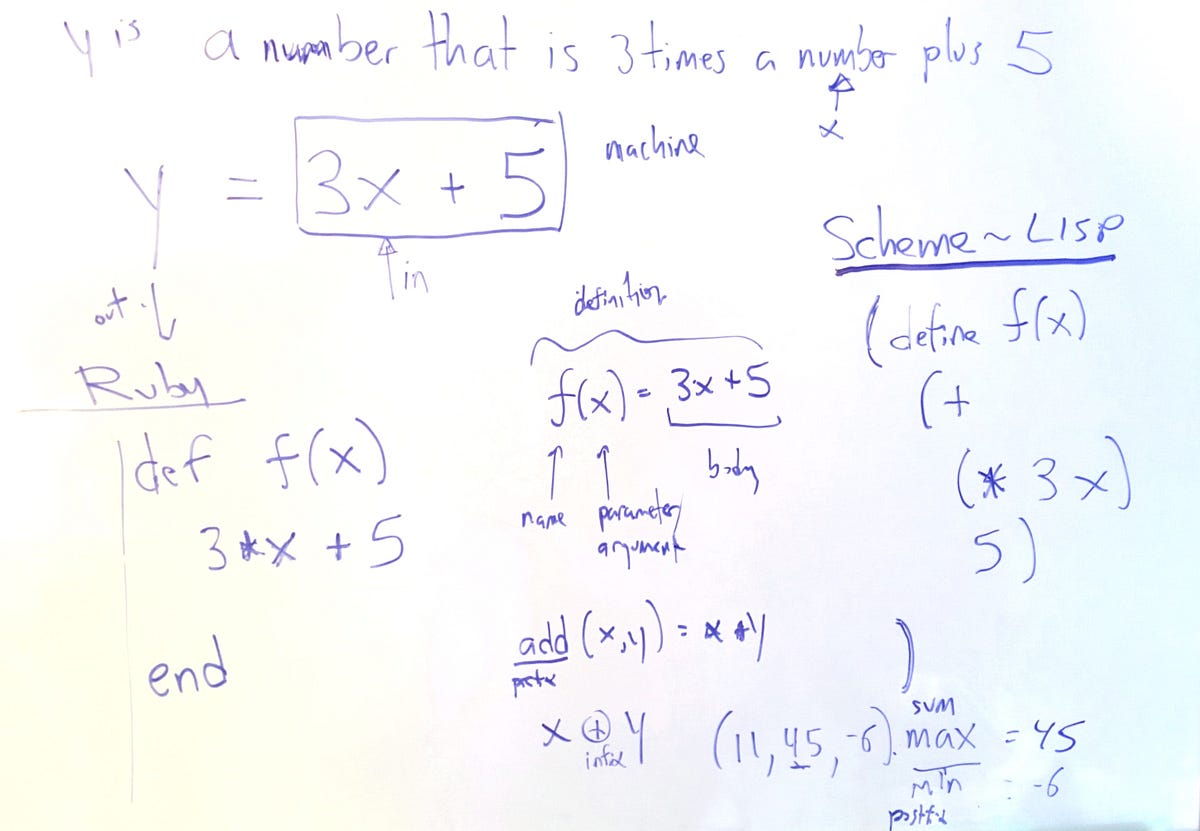 y is a number that is 3 times a number plus 5
x
y = 3x + 5
machine
in
out
Scheme ~ LISP
(define f(x)
(+
(* 3 x)
5)
)
Ruby
def f(x)
3*x + 5
end
definition
f(x) = 3x + 5
name
parameter/
argument
body
add (x,y) = x + y
prefix
x + y
infix
sum
(11, 45, -6). max = 45
min = -6
postfix